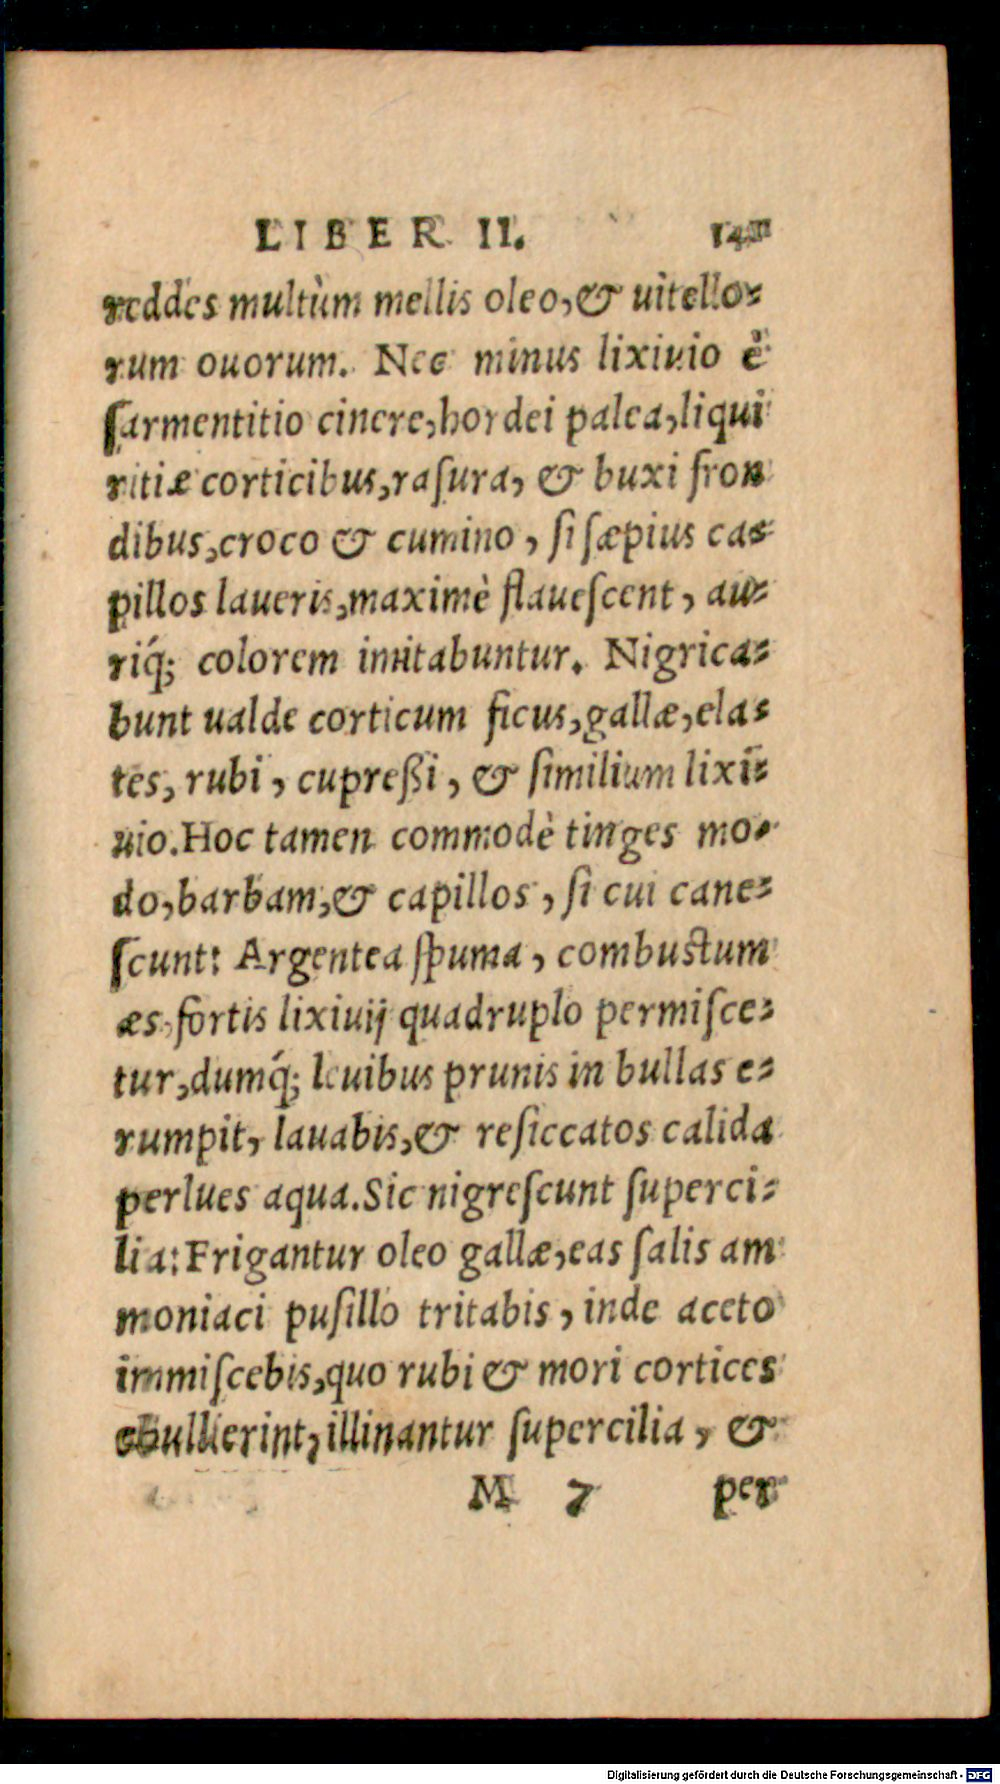 LIBER II.
reddes multùm mellis oleo,& uitello-
rum ouorum. Nec minus lixiuio è
ſarmentitio cinere,hordei palea,liqui
ritiæ corticibus,raſura, & buxi fron
dibus,croco & cumino , ſi ſæpius ca-
pillos laueris,maximè flaueſcent , au-
riq́; colorem imitabuntur. Nigrica-
bunt ualde corticum ficus,gallæ,ela-
tes, rubi , cupreßi , & ſimilium lixi-
uio.Hoc tamen commodè tinges mo-
do,barbam,& capillos , ſi cui cane-
ſcunt: Argentea ſpuma , combustum
æs,fortis lixiuij quadruplo permiſce-
tur,dumq́; leuibus prunis in bullas e-
rumpit, lauabis,& reſiccatos calida
perlues aqua.Sic nigreſcunt ſuperci-
lia:Frigantur oleo gallæ,eas ſalis am
moniaci puſillo tritabis , inde aceto
immiſcebis,quo rubi & mori cortices
ebullierint,illinantur ſupercilia , &
M 7 per
Digitalisierung gefördert durch die Deutsche Forschungsgemeinschaft - DFG